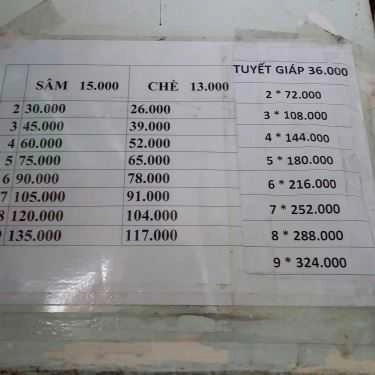 SÂM 15.000 CHÈ 13.000
2 30.000 26.000
3 45.000 39.000
4 60.000 52.000
5 75.000 65.000
6 90.000 78.000
7 105.000 91.000
8 120.000 104.000
9 135.000 117.000
TUYẾT GIÁP 36.000
2 * 72.000
3 * 108.000
4 * 144.000
5 * 180.000
6 * 216.000
7 * 252.000
8 * 288.000
9 * 324.000